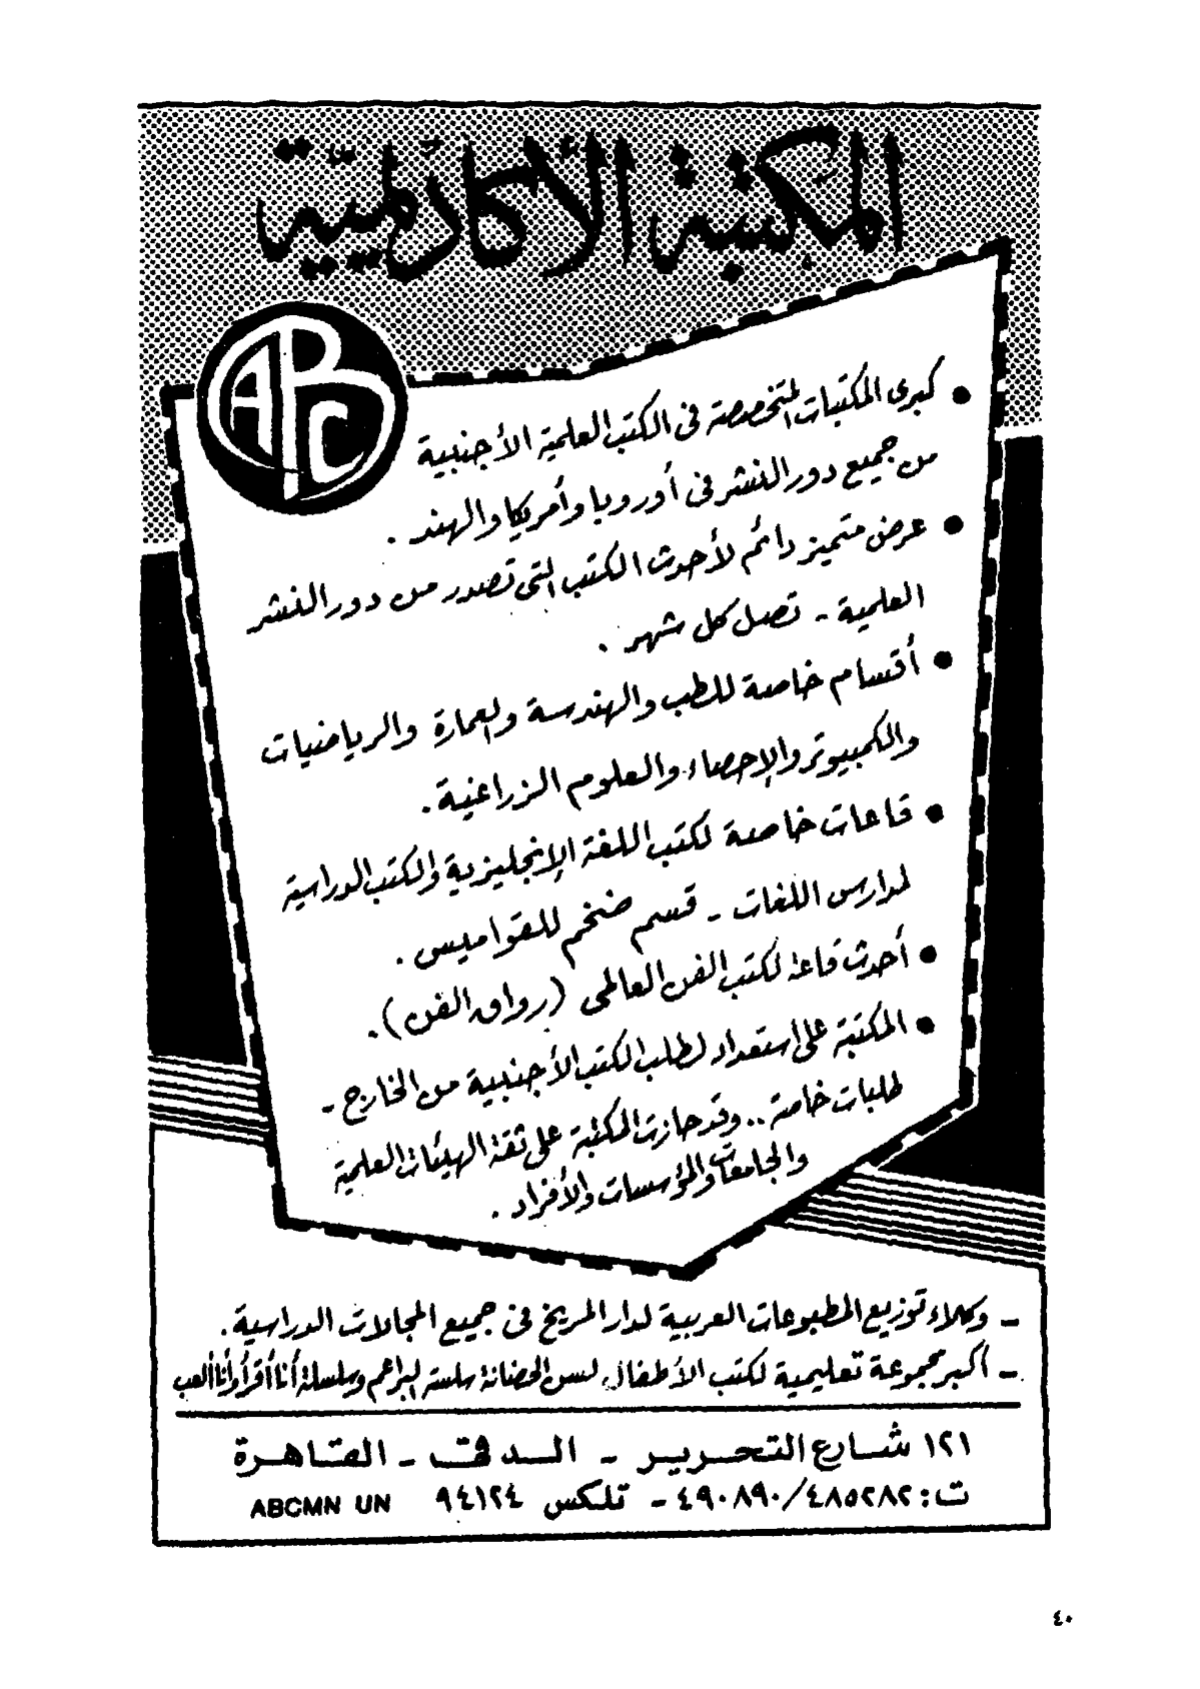 المكتبة الأكاديمية
ABC
• كبرى المكتبات المتخصصة فى الكتب العلمية الأجنبية
من جميع دور النشر فى أوروبا وأمريكا والهند .
• عرض متميز دائم لأحدث الكتب التى تصدر من دور النشر
العلمية - تصل كل شهر .
• أقسام خاصة للطب والهندسة والعمارة والرياضيات
والكمبيوتر والإحصاء والعلوم الزراعية .
• قاعات خاصة لكتب اللغة الإنجليزية والكتب الدراسية
لمدارس اللغات - قسم ضخم للقواميس .
• أحدث قاعة لكتب الفن العالمى (رواق الفن) .
• المكتبة على استعداد لطلب الكتب الأجنبية من الخارج -
طلبات خاصة .. وقد حازت المكتبة على ثقة الهيئات العلمية
والجامعات والمؤسسات والأفراد .
- وكلاء توزيع المطبوعات العربية لدار المريخ فى جميع المجالات الدراسية .
- أكبر مجموعة تعليمية لكتب الأطفال لسن الحضانة سلسلة البراعم وسلسلة أنا أقرأ وأنا ألعب
١٢١ شارع التحرير - الدقى - القاهرة
ت : ٤٨٥٢٨٢/٤٩٠٨٩٠ - تلكس ٩٤١٢٤ ABCMN UN
٤٠